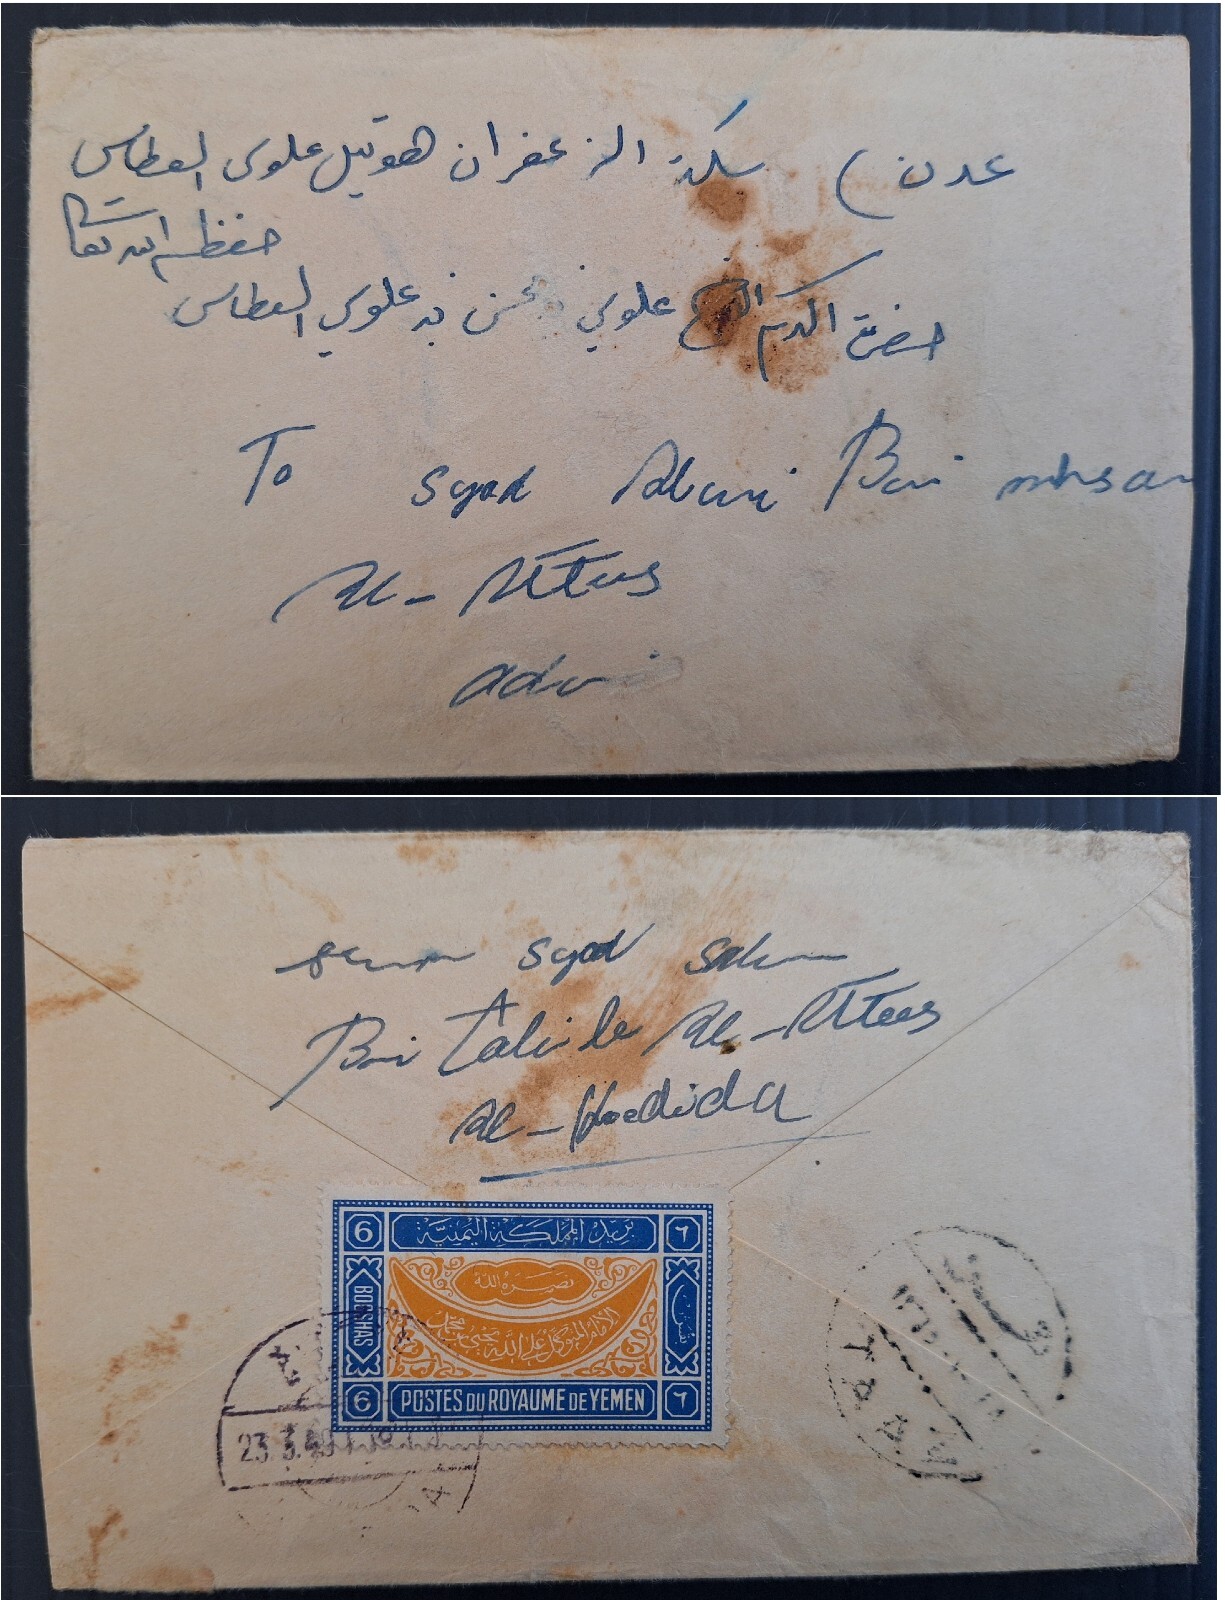 عدن) سكة الزعفران هوتيل علوي العطاس
حفظه الله تعالى
حضرة المكرم الاخ علوي بن محسن بن علوي العطاس
To Syed Alwi Bin mhsan
Al-Attas
adn
Syed Salem
Bin Talib Al-Attas
Al-Hodeida
6 بريد المملكة اليمنية ٦
نصره الله
الامام المتوكل على الله يحيى بن محمد
BOGSHAS
بقش
6 POSTES DU ROYAUME DE YEMEN ٦
23.3.49